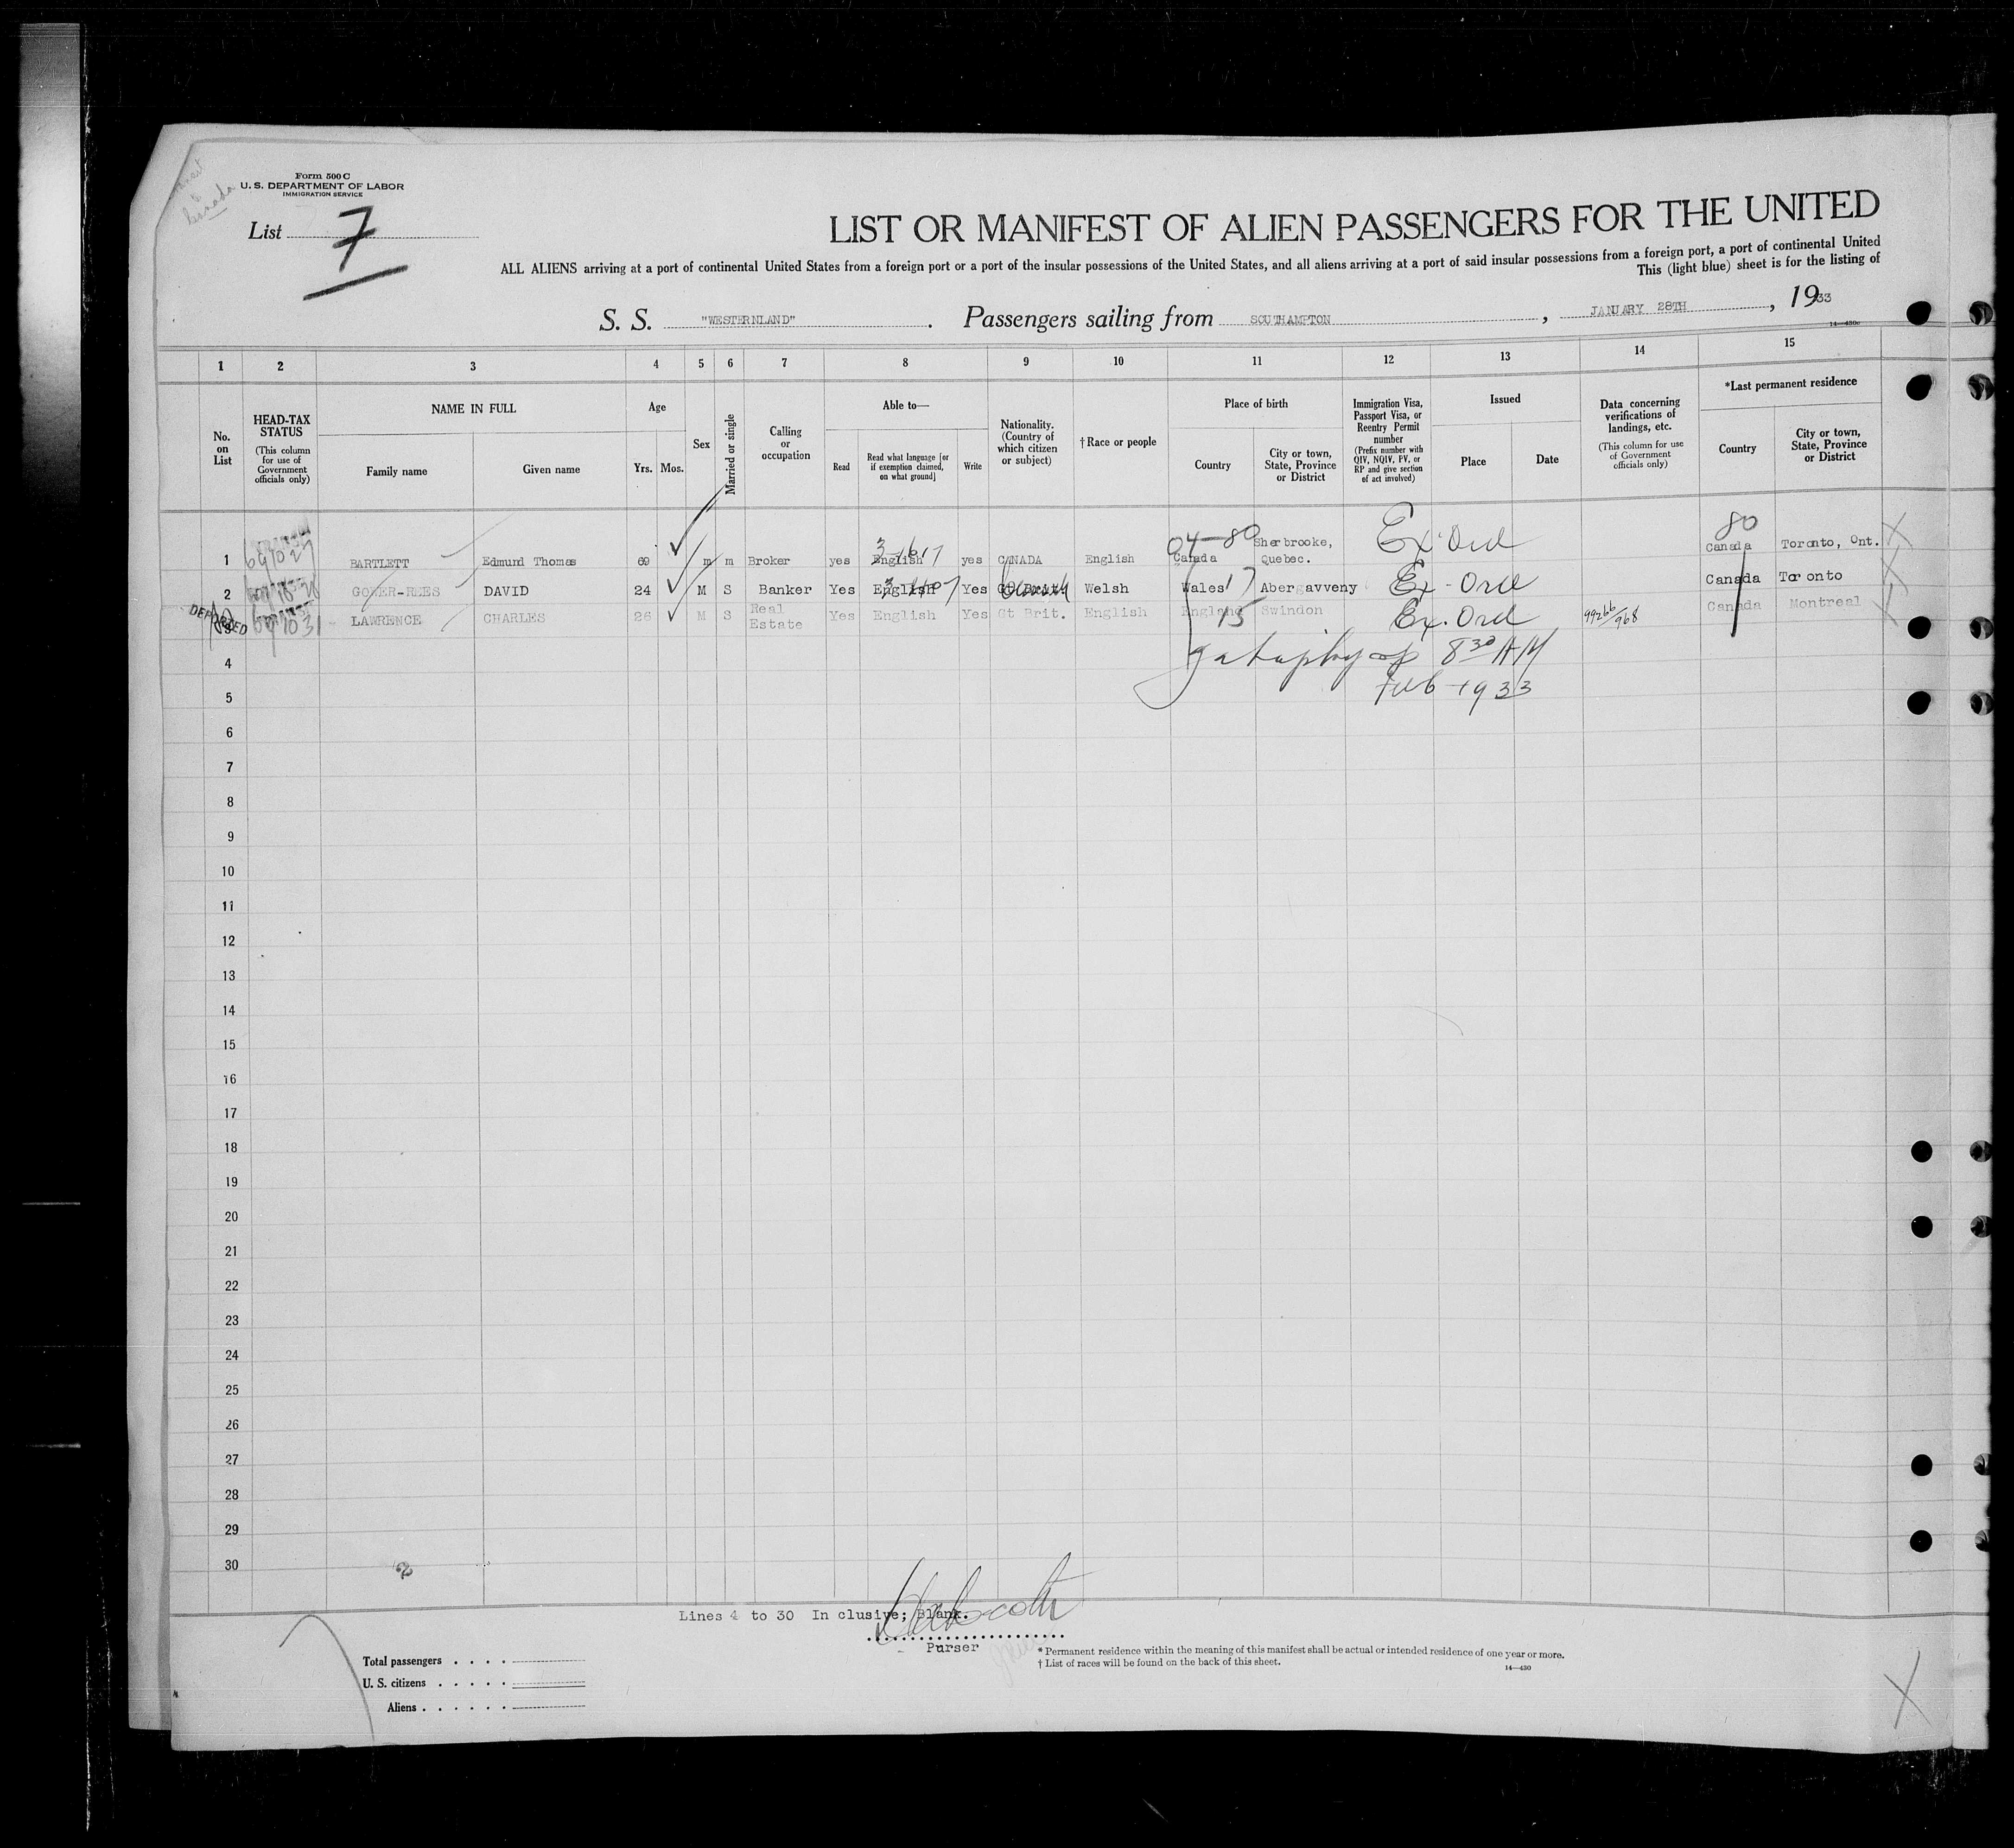 Form 500 C
U. S. DEPARTMENT OF LABOR
IMMIGRATION SERVICE
Canada
List 7
LIST OR MANIFEST OF ALIEN PASSENGERS FOR THE UNITED
ALL ALIENS arriving at a port of continental United States from a foreign port or a port of the insular possessions of the United States, and all aliens arriving at a port of said insular possessions from a foreign port, a port of continental United
This (light blue) sheet is for the listing of
S. S. "WESTERNLAND". Passengers sailing from SOUTHAMPTON, JANUARY 28TH, 1933
14—430c
1 2 3 4 5 6 7 8 9 10 11 12 13 14 15
No. on List
HEAD-TAX STATUS
(This column for use of Government officials only)
NAME IN FULL
Family name
Given name
Age
Yrs. Mos.
Sex
Married or single
Calling or occupation
Able to—
Read
Read what language [or if exemption claimed, on what ground]
Write
Nationality. (Country of which citizen or subject)
†Race or people
Place of birth
Country
City or town, State, Province or District
Immigration Visa, Passport Visa, or Reentry Permit number
(Prefix number with QIV, NQIV, PV, or RP and give section of act involved)
Issued
Place
Date
Data concerning verifications of landings, etc.
(This column for use of Government officials only)
*Last permanent residence
Country
City or town, State, Province or District
04-80 80
1 BARTLETT Edmund Thomas 69 m m Broker yes English yes CANADA English Canada Sherbrooke, Quebec. Ex Ord Canada Toronto, Ont.
2 GOWER-REES DAVID 24 M S Banker Yes English Yes Gt Brit. Welsh Wales 17 Abergavveny Ex-Ord Canada Toronto
DEPORTED 3 LAWRENCE CHARLES 26 M S Real Estate Yes English Yes Gt Brit. English England 15 Swindon Ex. Ord 99266/968 Canada Montreal
4 8 30 AM
5 Feb 1933
6
7
8
9
10
11
12
13
14
15
16
17
18
19
20
21
22
23
24
25
26
27
28
29
30
2
Lines 4 to 30 In clusive; Blank.
Purser
Total passengers
U. S. citizens
Aliens
* Permanent residence within the meaning of this manifest shall be actual or intended residence of one year or more.
† List of races will be found on the back of this sheet.
14—430